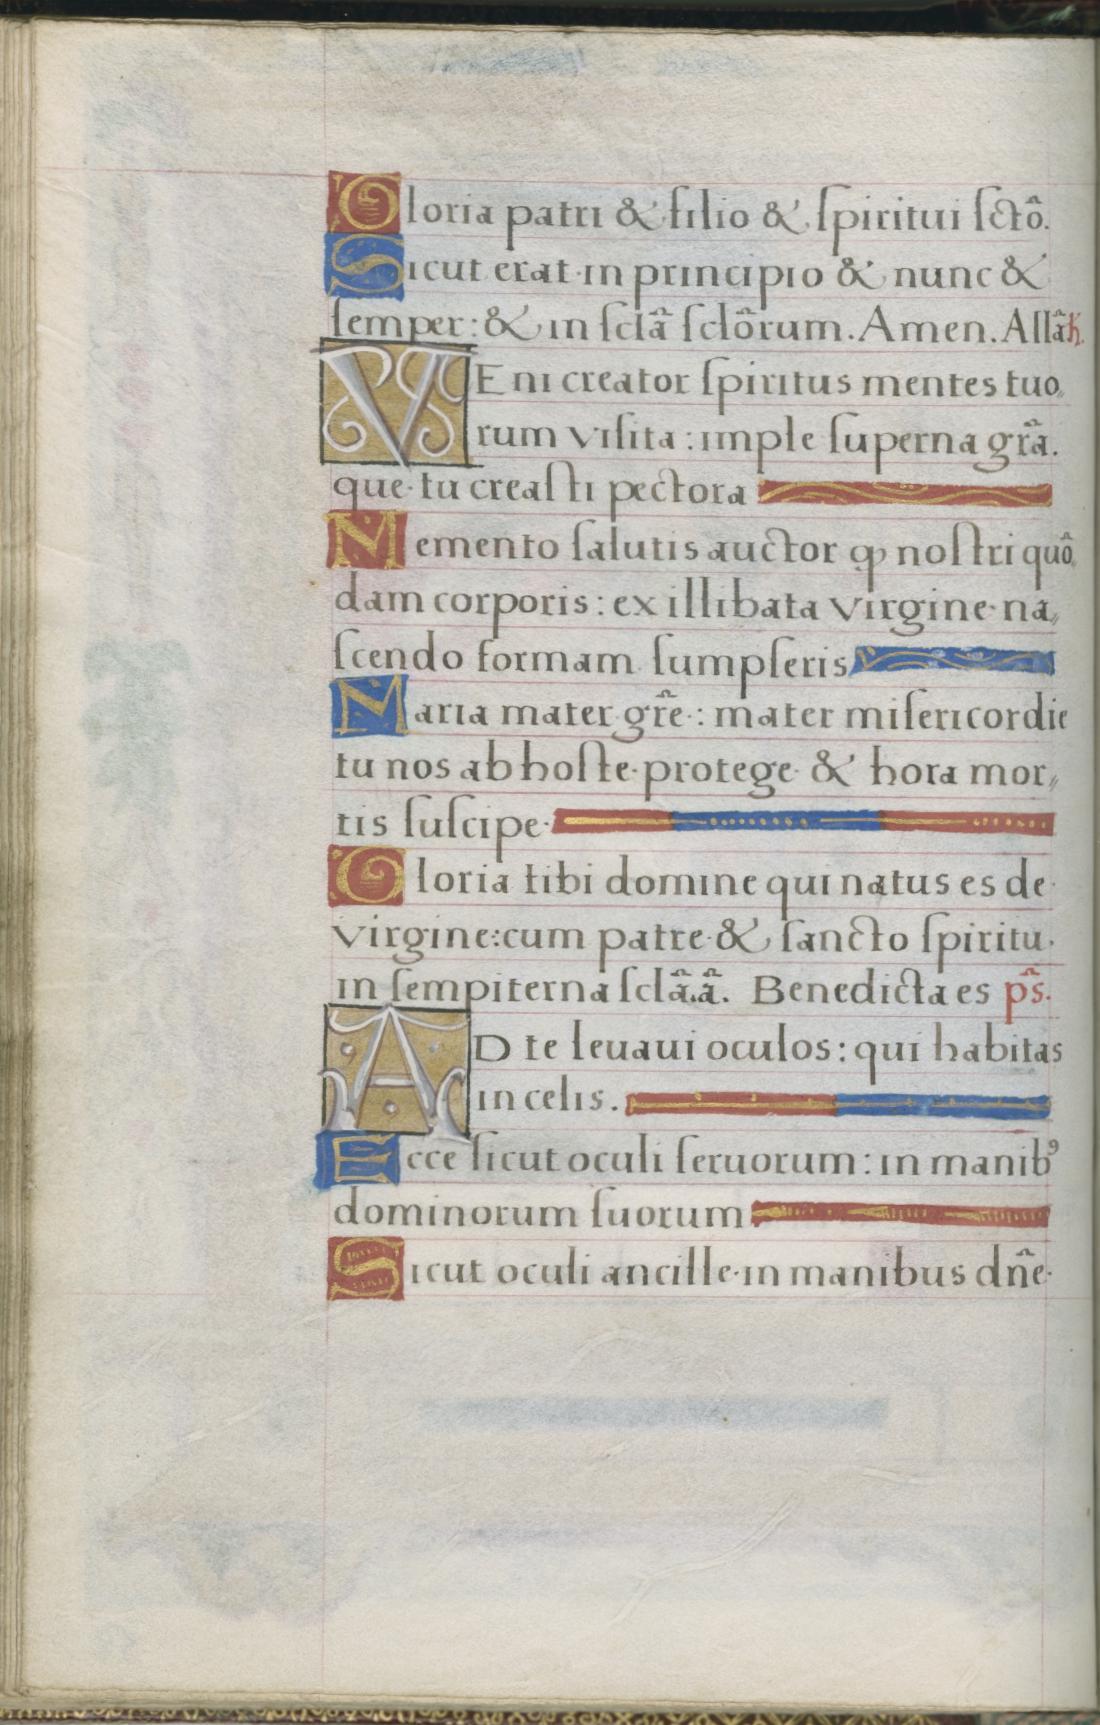 Gloria patri & filio & ſpiritui ſctô.
Sicut erat in principio & nunc &
ſemper: & in ſclã ſclõrum. Amen. Allãh.
VEni creator ſpiritus mentes tuo,,
rum viſita: imple ſuperna gr̃a.
que tu creaſti pectora
Memento ſalutis auctor ꝙ noſtri quõ,,
dam corporis: ex illibata virgine na,,
ſcendo formam ſumpſeris
Maria mater gr̃e: mater miſericordie
tu nos ab hoſte protege & hora mor,,
tis ſuſcipe.
Gloria tibi domine qui natus es de
virgine: cum patre & ſancto ſpiritu.
in ſempiterna ſclã.ã. Benedicta es p̃s.
AD te leuaui oculos: qui habitas
in celis.
Ecce ſicut oculi ſeruorum: in manibꝰ
dominorum ſuorum
Sicut oculi ancille in manibus dñe